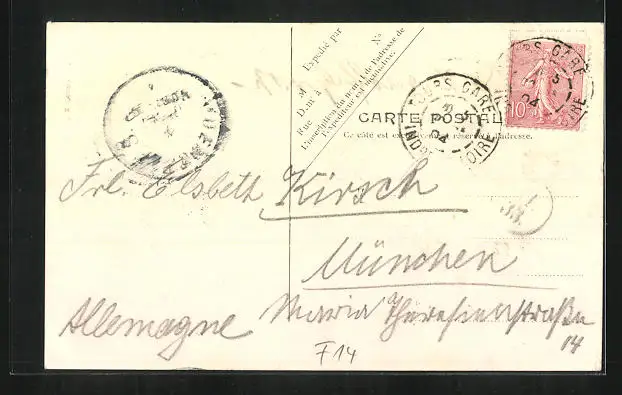 M
Expédié par
N°
Dem t à
Rue
L'inscription du nom et de l'adresse de
l'Expéditeur est facultative.
CARTE POSTALE
Ce côté est exclusivement réservé à l'adresse.
TOURS GARE
INDRE ET LOIRE
04
TOURS GARE
LOIRE
04
10
Frl. Elsbeth Kirsch
33.
München
Allemagne
Maria Theresienstraße
14
F14